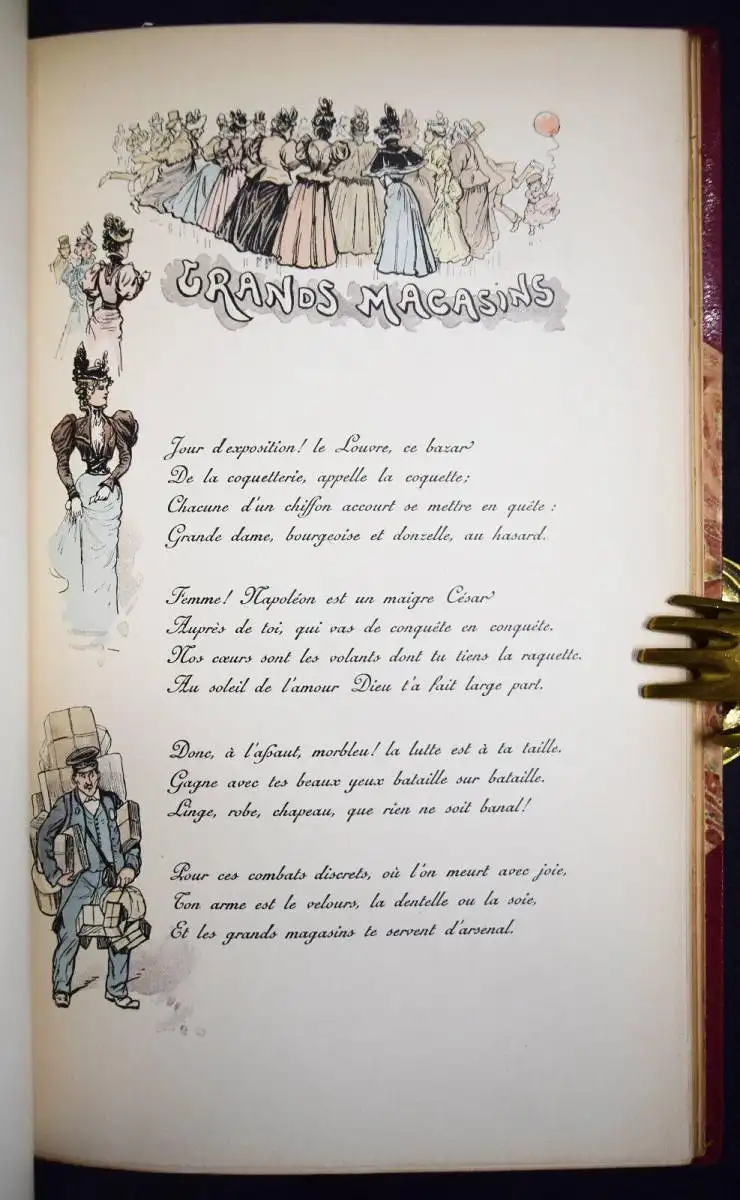 GRANDS MAGASINS
Jour d'exposition! le Louvre, ce bazar
De la coquetterie, appelle la coquette;
Chacune d'un chiffon accourt se mettre en quête :
Grande dame, bourgeoise et donzelle, au hasard.
Femme! Napoléon est un maigre César
Auprès de toi, qui vas de conquête en conquête.
Nos cœurs sont les volants dont tu tiens la raquette.
Au soleil de l'amour Dieu t'a fait large part.
Donc, à l'aſsaut, morbleu! la lutte est à ta taille.
Gagne avec tes beaux yeux bataille sur bataille.
Linge, robe, chapeau, que rien ne soit banal!
Pour ces combats discrets, où l'on meurt avec joie,
Ton arme est le velours, la dentelle ou la soie,
Et les grands magasins te servent d'arsenal.